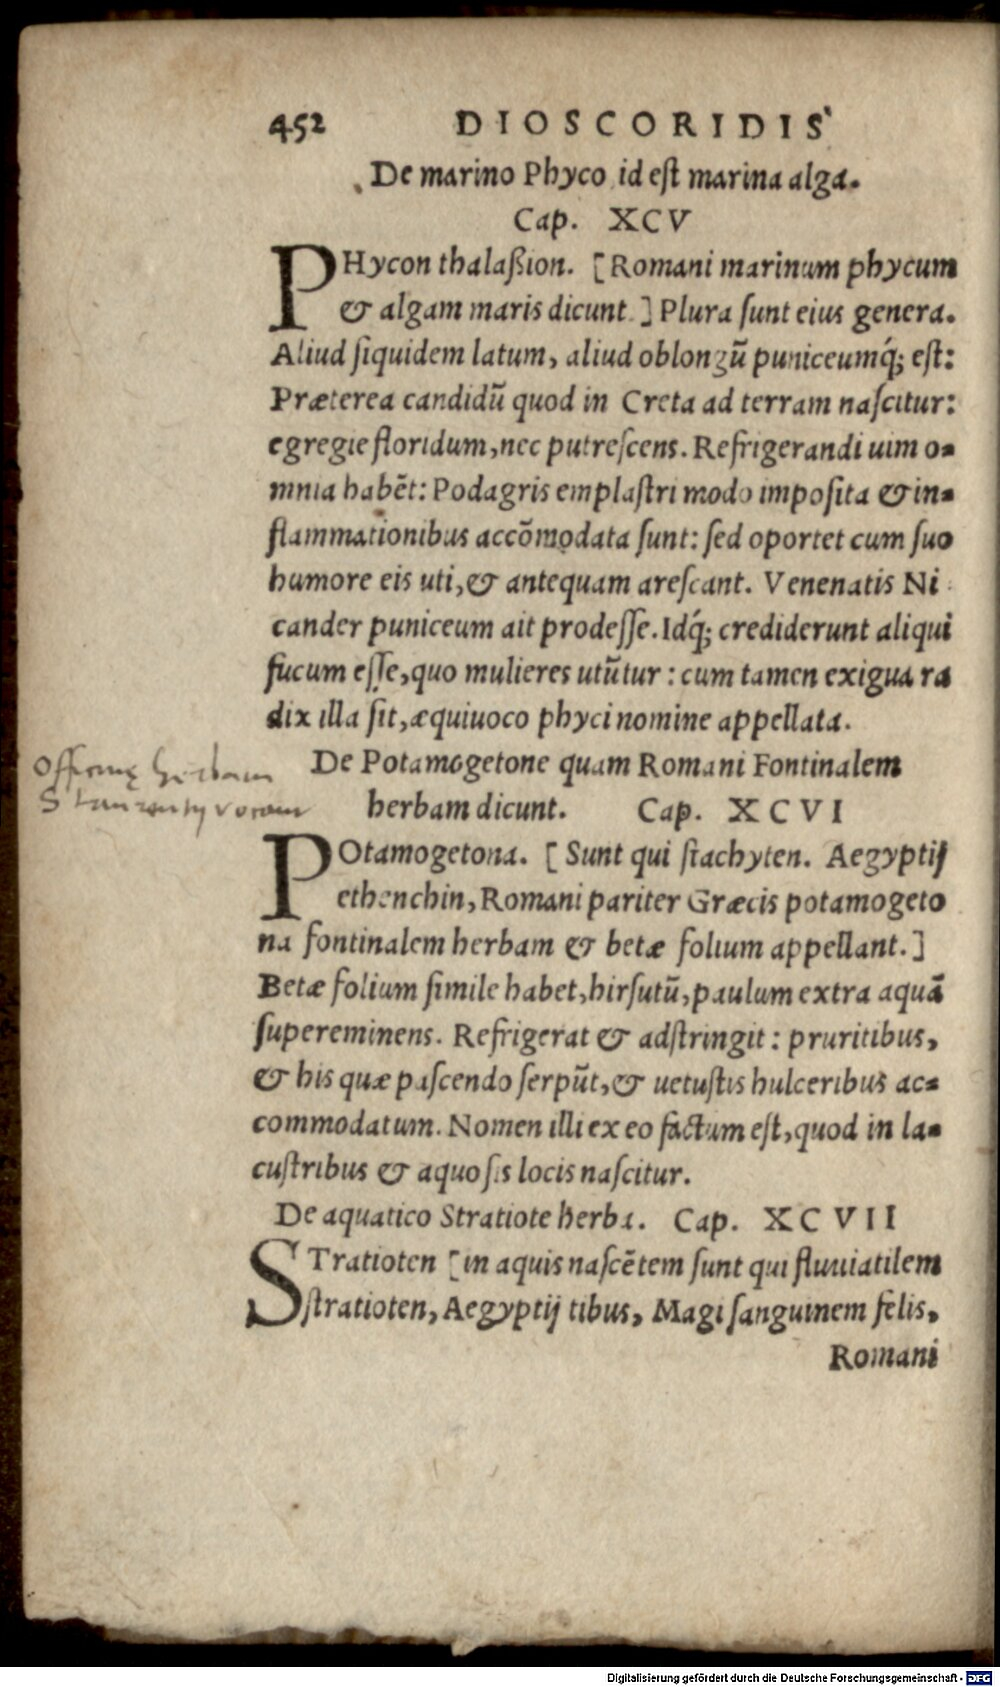 452 DIOSCORIDIS
De marino Phyco id eſt marina alga.
Cap. XCV
PHycon thalaßion. [Romani marinum phycum
& algam maris dicunt.] Plura ſunt eius genera.
Aliud ſiquidem latum, aliud oblongū puniceumq́; eſt:
Præterea candidū quod in Creta ad terram naſcitur:
egregie floridum, nec putreſcens. Refrigerandi uim o-
mnia habēt: Podagris emplaſtri modo impoſita & in-
flammationibus accōmodata ſunt: ſed oportet cum ſuo
humore eis uti, & antequam areſcant. Venenatis Ni
cander puniceum ait prodeſſe. Idq́; crediderunt aliqui
fucum eſſe, quo mulieres utūtur: cum tamen exigua ra
dix illa ſit, æquiuoco phyci nomine appellata.
De Potamogetone quam Romani Fontinalem
herbam dicunt. Cap. XCVI
Officinę herbam
vocant
POtamogetona. [Sunt qui ſtachyten. Aegyptij
ethenchin, Romani pariter Græcis potamogeto
na fontinalem herbam & betæ folium appellant.]
Betæ folium ſimile habet, hirſutū, paulum extra aquā
ſupereminens. Refrigerat & adſtringit: pruritibus,
& his quæ paſcendo ſerpūt, & uetuſtis hulceribus ac-
commodatum. Nomen illi ex eo factum eſt, quod in la-
cuſtribus & aquoſis locis naſcitur.
De aquatico Stratiote herba. Cap. XCVII
STratioten [in aquis naſcētem ſunt qui fluuiatilem
ſtratioten, Aegyptij tibus, Magi ſanguinem felis,
Romani
Digitalisierung gefördert durch die Deutsche Forschungsgemeinschaft - DFG